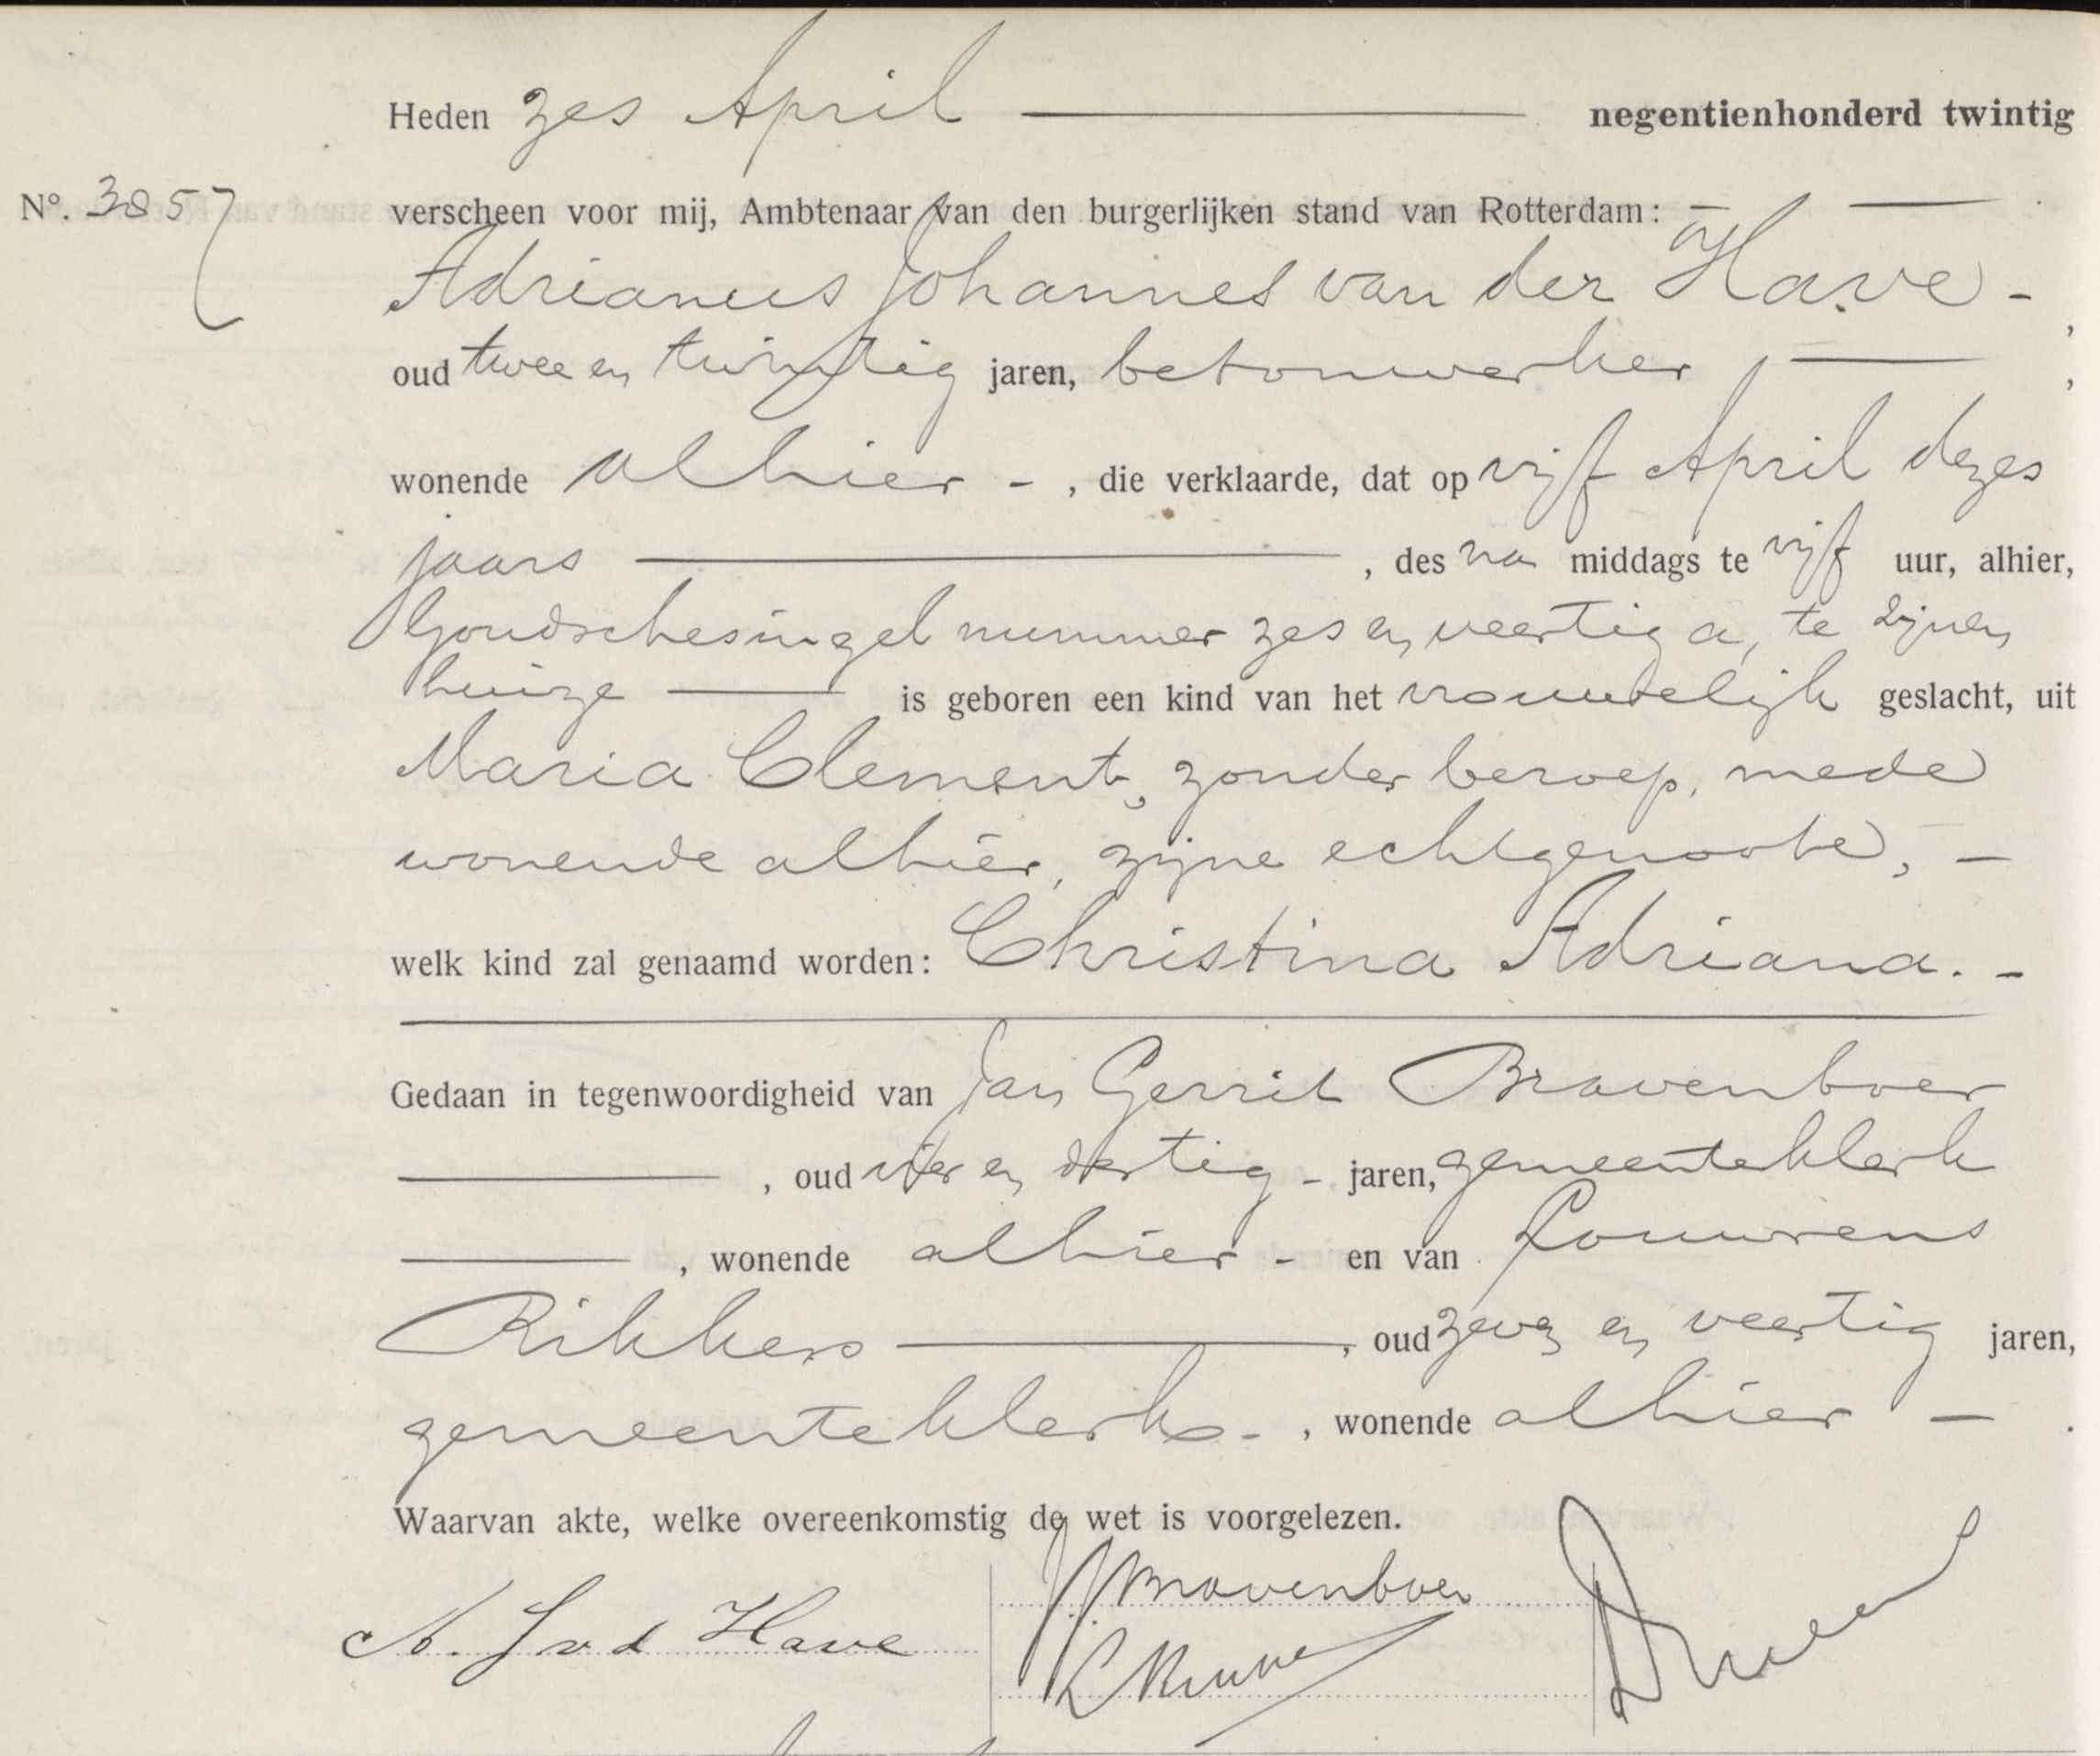 Heden zes April negentienhonderd twintig
No. 3057 verscheen voor mij, Ambtenaar van den burgerlijken stand van Rotterdam:
Adrianus Johannes van der Have
oud twee en twintig jaren, betonwerker,
wonende alhier, die verklaarde, dat op vijf April dezes
jaars, des na middags te vijf uur, alhier,
Goudschesingel nummer zes en veertig a, te zijnen
huize is geboren een kind van het vrouwelijk geslacht, uit
Maria Clement, zonder beroep, mede
wonende alhier, zijne echtgenoote,
welk kind zal genaamd worden: Christina Adriana.
Gedaan in tegenwoordigheid van Jan Gerrit Bravenboer
, oud vier en dertig jaren, gemeenteklerk
, wonende alhier en van Louwrens
Rikkers, oud zeven en veertig jaren,
gemeenteklerk, wonende alhier.
Waarvan akte, welke overeenkomstig de wet is voorgelezen.
A. J v d Have
Bravenboer